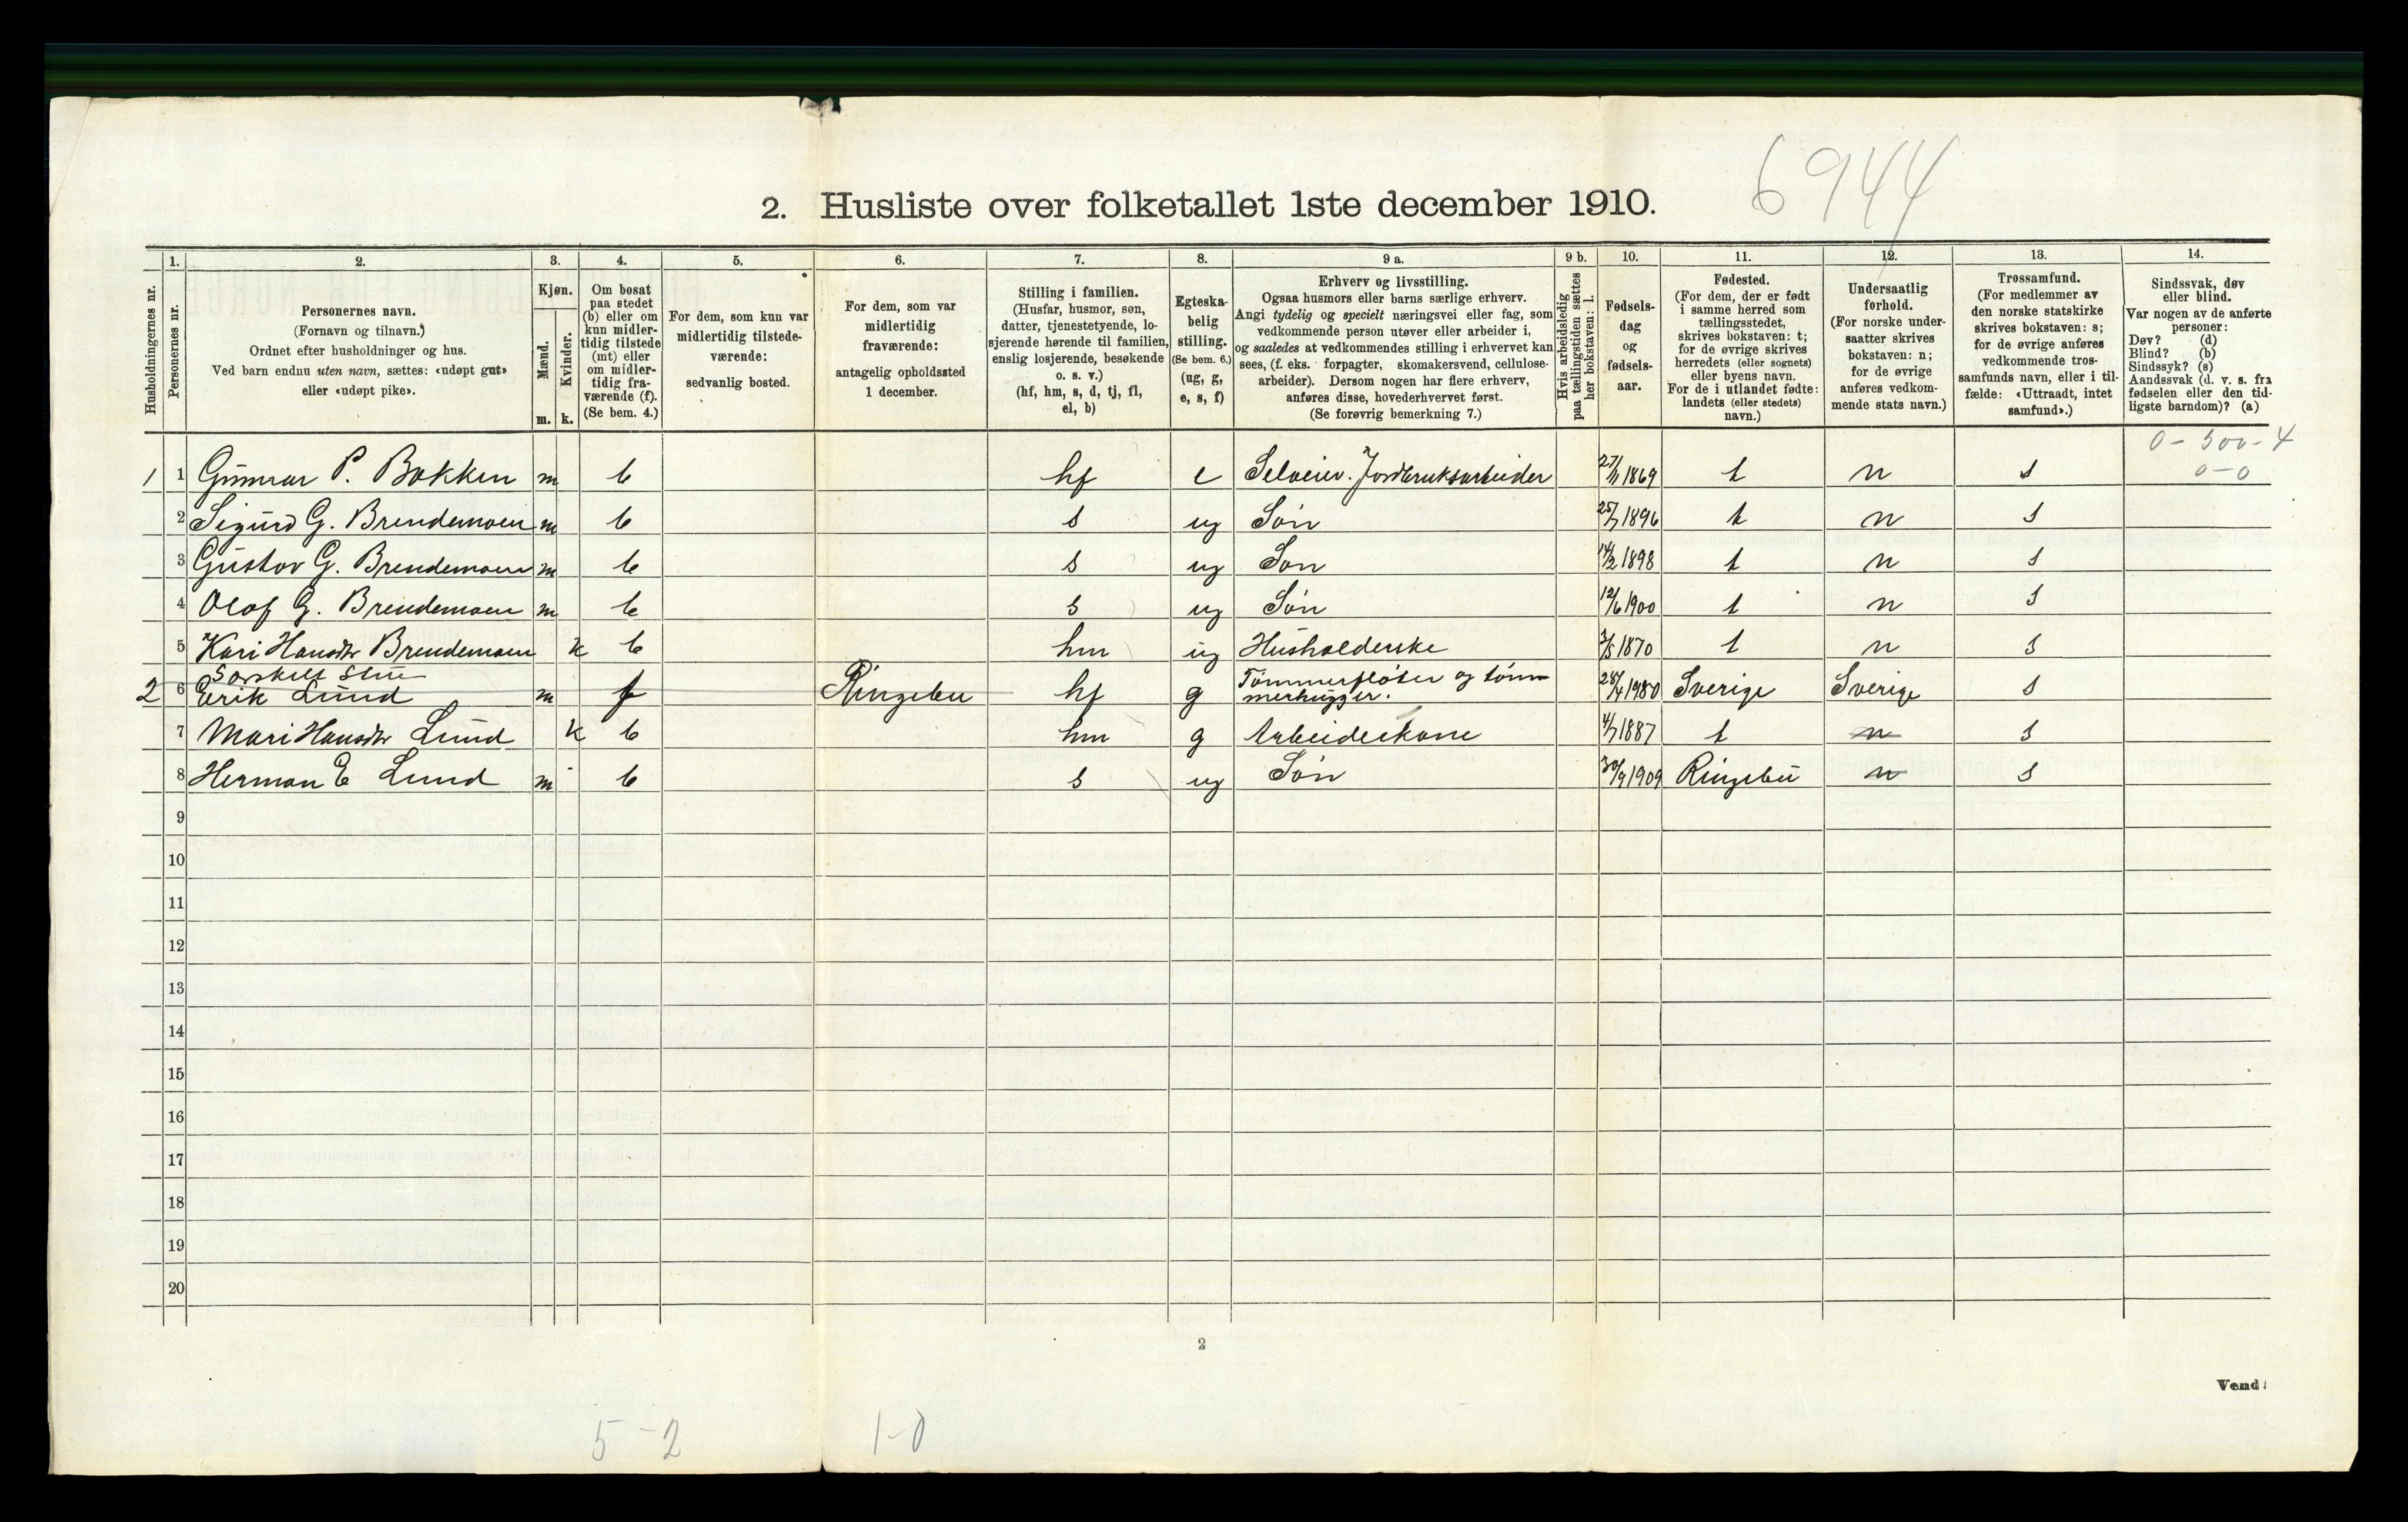 6944
2. Husliste over folketallet 1ste december 1910.
1. 2. 3. 4. 5. 6. 7. 8. 9 a. 9 b. 10. 11. 12. 13. 14.
Husholdningernes nr.
Personernes nr.
Personernes navn.
(Fornavn og tilnavn.)
Ordnet efter husholdninger og hus.
Ved barn endnu uten navn, sættes: «udøpt gut»
eller «udøpt pike».
Kjøn.
Mænd.
Kvinder.
m. k.
Om bosat
paa stedet
(b) eller om
kun midler-
tidig tilstede
(mt) eller
om midler-
tidig fra-
værende (f).
(Se bem. 4.)
For dem, som kun var
midlertidig tilstede-
værende:
sedvanlig bosted.
For dem, som var
midlertidig
fraværende:
antagelig opholdssted
1 december.
Stilling i familien.
(Husfar, husmor, søn,
datter, tjenestetyende, lo-
sjerende hørende til familien,
enslig losjerende, besøkende
o. s. v.)
(hf, hm, s, d, tj, fl,
el, b)
Egteska-
belig
stilling.
(Se bem. 6.)
(ug, g,
e, s, f)
Erhverv og livsstilling.
Ogsaa husmors eller barns særlige erhverv.
Angi tydelig og specielt næringsvei eller fag, som
vedkommende person utøver eller arbeider i,
og saaledes at vedkommendes stilling i erhvervet kan
sees, (f. eks. forpagter, skomakersvend, cellulose-
arbeider). Dersom nogen har flere erhverv,
anføres disse, hovederhvervet først.
(Se forøvrig bemerkning 7.)
Hvis arbeidsledig
paa tællingstiden sættes
her bokstaven: l.
Fødsels-
dag
og
fødsels-
aar.
Fødested.
(For dem, der er født
i samme herred som
tællingsstedet,
skrives bokstaven: t;
for de øvrige skrives
herredets (eller sognets)
eller byens navn.
For de i utlandet fødte:
landets (eller stedets)
navn.)
Undersaatlig
forhold.
(For norske under-
saatter skrives
bokstaven: n;
for de øvrige
anføres vedkom-
mende stats navn.)
Trossamfund.
(For medlemmer av
den norske statskirke
skrives bokstaven: s;
for de øvrige anføres
vedkommende tros-
samfunds navn, eller i til-
fælde: «Uttraadt, intet
samfund».)
Sindssvak, døv
eller blind.
Var nogen av de anførte
personer:
Døv? (d)
Blind? (b)
Sindssyk? (s)
Aandssvak (d. v. s. fra
fødselen eller den tid-
ligste barndom)? (a)
0 - 500 - 4
0 - 0
1 1 Gunnar P. Bakken m b hf e Selveier. Jordbruksarbeider 27/11 1869 t n s
2 Sigurd G. Brendemoen m b s ug Søn 25/7 1896 t n s
3 Gustav G. Brendemoen m b s ug Søn 14/2 1898 t n s
4 Olaf G. Brendemoen m b s ug Søn 12/6 1900 t n s
5 Kari Hansdtr Brendemoen k b hm ug Husholderske 3/5 1870 t n s
Særskilt stue
2 6 Erik Lund m f Ringebu hf g Tømmerfløter og tøm-
merhugger. 28/4 1980 Sverige Sverige s
7 Mari Hansdtr Lund k b hm g Arbeiderkone 4/7 1887 t n s
8 Herman E Lund m b s ug Søn 30/9 1909 Ringebu n s
9
10
11
12
13
14
15
16
17
18
19
20
2
Vend!
5 - 2 1-0